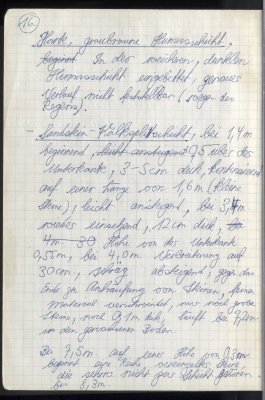 16.
Harte, graubraune Humusschicht,
beginnt In der weichen, dunklen
Humusschicht eingebettet, genauer
Verlauf nicht feststellbar (wegen des
Regens).
- Sandstein-Kalksplittschicht, bei 1,4m
beginnend, leicht ansteigend 75 über der
Unterkante, 3-5cm dick, kontinuierl
auf einer Länge von 1,6m (kleine
Steine), leicht ansteigend, bei 3,4m
wieder einsetzend, 12cm dick,
4m. 30 Höhe von der Unterkante
0,55m, bei 4,0m Verbreiterung auf
30cm, schräg absteigend, gegen das
Ende zu Anhäufung von Steinen, feines
material verschwindet, nur mehr grobe
Steine, noch 0,1m dick, läuft bei 7,4m
in den gewachsenen Boden.
Bei 7,5m auf einer Höhe von 0,3m
beginnt eine Reihe vereinzelter Steine
die schon nicht zur Schicht gehören.
bei 8,3m.